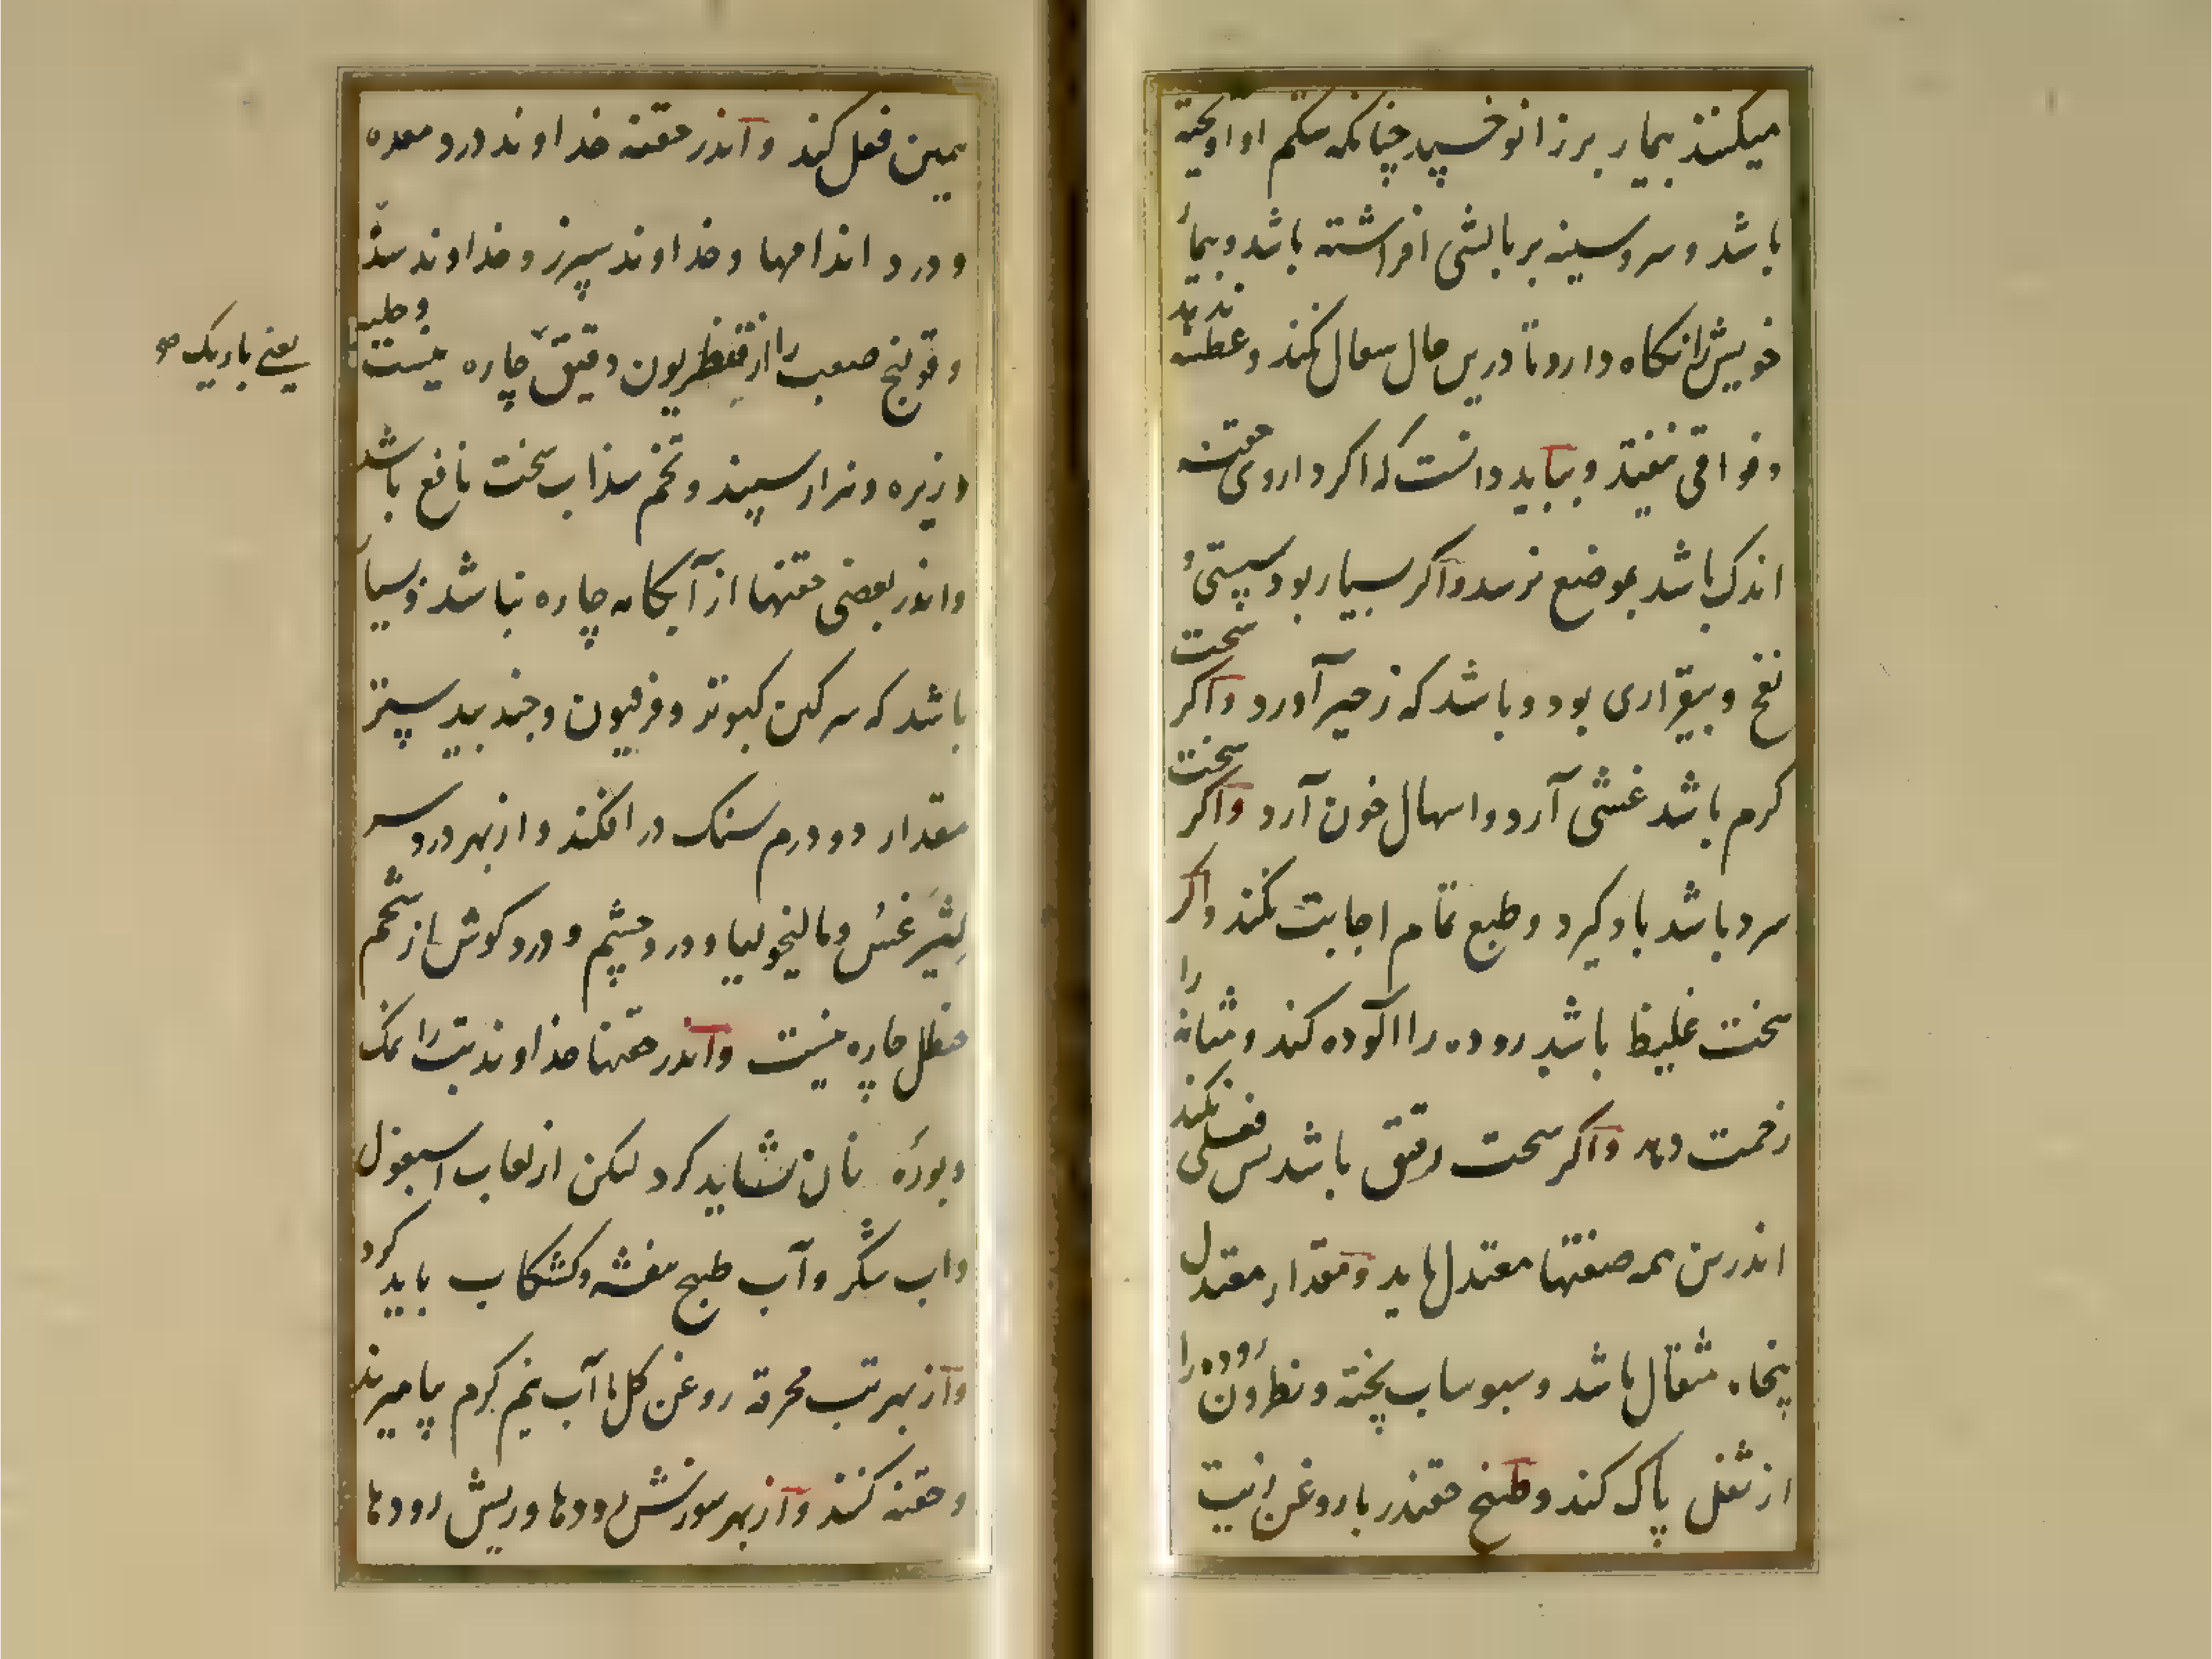 میکنند بیمار بر زانو خسپد چنانکه شکم او اویخته
باشد و سر و سینه بر بالشی افراشته باشد و بیمار
خویش را نکاه دارد تا درین حال سعال نکند و عطسه ندهد
و فواقی نیفتد و بباید دانست که اکر داروی حقنه
اندک باشد بموضع نرسد و اکر بسیار بود سپستی و
نفخ و بیقراری بود و باشد که زحیر آورد و اکر سخت
کرم باشد غشی آرد و اسهال خون آرد و اکر سخت
سرد باشد باد کیرد و طبع تمام اجابت نکند و اکر
سخت غلیظ باشد روده را الوده کند و مثانه را
زحمت دهد و اکر سخت رقیق باشد بس فعلی نکند
اندرین همه صفتها معتدل باید و مقدار معتدل
پنجاه مثقال باشد و سبوساب پخته و نطرون روده را
از ثفل پاک کند و طبیخ حقندر با روغن زیت
همین فعل کند و اندر حقنه خداوند درد معده
و درد اندامها و خداوند سپرز و خداوند سدّه
و قولنج صعب را از قنطریون دقیق چاره نیست و حلبه
یعنے باریک
و زیره و هزار سپند و تخم سذاب سخت نافع باشد
و اندر بعضی حقنها از آبکامه چاره نباشد و بسیار
باشد که سرکین کبوتر و فرفیون و جند بیدستر
مقدار دو درم سنک در افکند و از بهر درد سر
لیثرغس و مالیخولیا و درد چشم و درد کوش از شحم
حنظل چاره نیست و اندر حقنها خداوند تب را نمک
و بوره نان نشاید کرد لیکن از لعاب اسبغول
و اب شکر و آب طبیخ بنفشه و کشکاب باید کرد
و از بهر تب محرقه روغن کل با آب نیم کرم بیامیزند
و حقنه کنند و از بهر سوزش رودها و ریش رودها